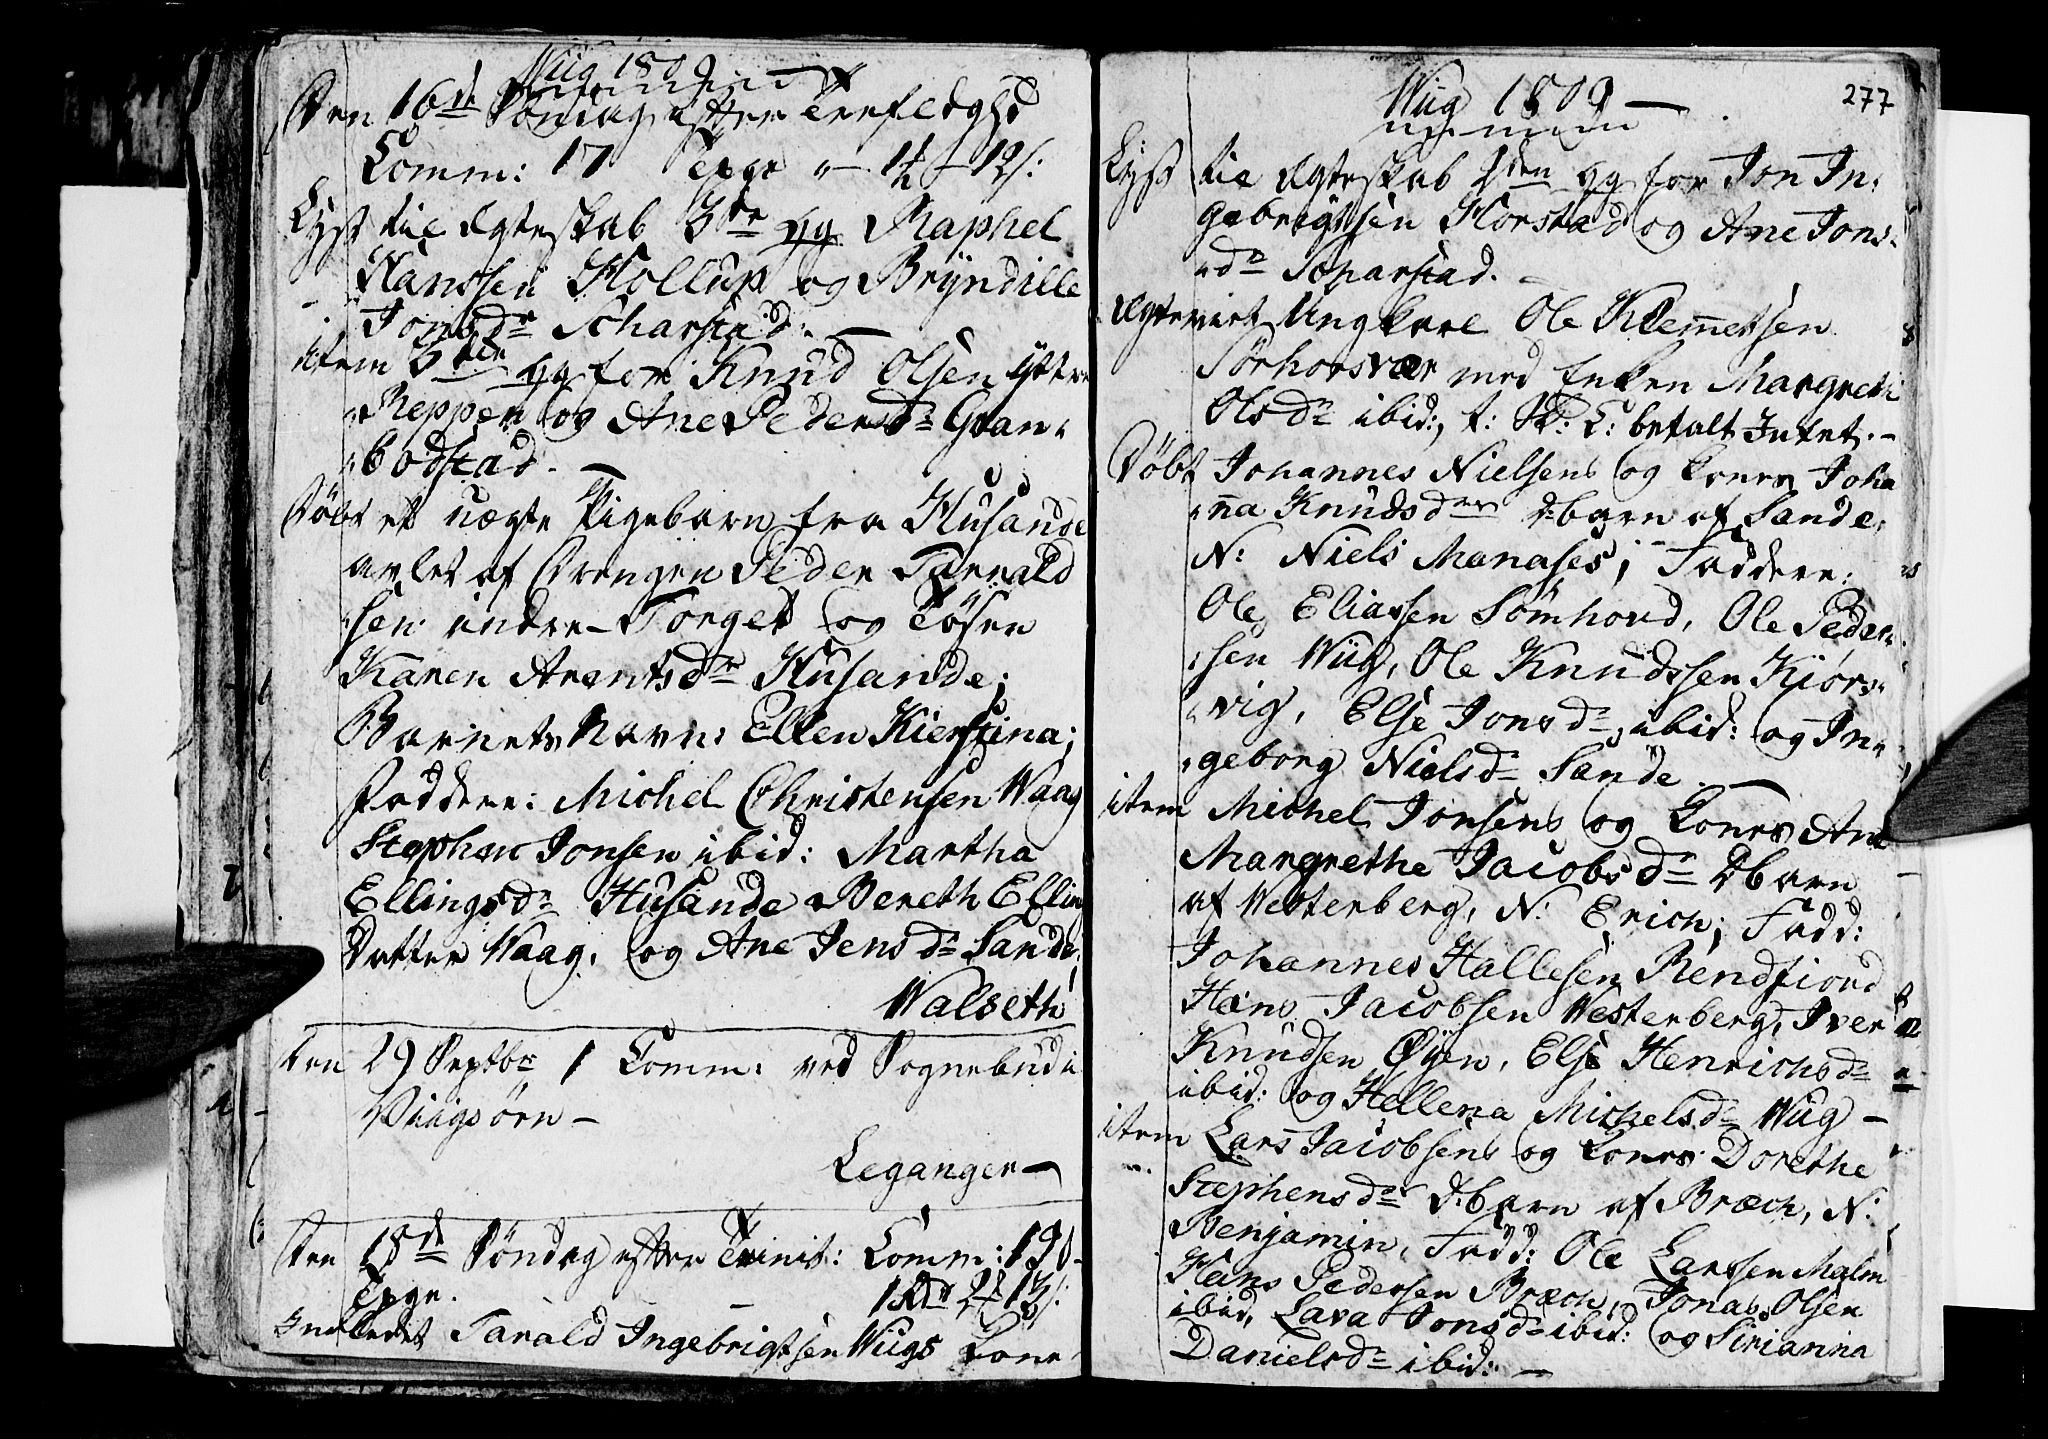 Wiig 1809
Den 16de Söndag efter Trefoldghd
Comm: 17 Tavle
Lyst til Ægteskab 3de Gg Raphel
Hanssen Hollup og Bryndille
Jonsdr Scharstad.
item 3die Gg for Knud Olsen yttre
Reppen og Ane Pedersdr Gran-
bodstad.
Döbt et uægte Pigebarn fra Husande
avlet af Drengen Peder Tarrald
sen indre Torget og Tösen
Karen Arentsdr Husande;
Barnets Navn: Ellen Kierstina;
Faddere: Michel Christensen Waag
Stephen Jonsen ibid: Martha
Ellingsdr Husande Bereth Elling
Datter Waag, og Ane Jensdr Sande.
Walseth
Den 29 Septbr 1 Comm: ved Sognebud i
Viigsörn –
Leganger –
Den 18de Söndag efter Trinit: Comm: 190
Indledet Tarald Ingebrigtsen Wiigs Kone
Wiig 1809 – 277
Lyst til Ægteskab Gg for Jon In-
gebrigtsen Horstad og Ane Jons-
dr Scharstad. –
Ægteviet Ungkarl Ole Klemetsen
Sörhorsvær med Enken Margrete
Olsdr ibid:, betalt Intet. –
Döbt Johannes Nielsens og Kones Joha
na Knudsdrs Æ:barn af Sande,
N: Niels Manases; Faddere:
Ole Eliassen Sömhovd, Ole Peder-
sen Wiig, Ole Knudssen Kiörs-
vig, Else Jonsdr ibid: og In-
geborg Nielsdr Sande –
item Michel Jonsens og Kones Ane
Margrethe Jacobsdr Æ:barn
af Westerberg, N: Erich; Fadd:
Johannes Hallesen Rendfiord
Hans Jacobsen Westerberg, Iver
Knudsen Öyen, Else Henrichsdr
ibid: og Hellena Michelsdr Wiig –
item Lars Jacobsens og Kones Dorethe
Stephensdr Æ:barn af Bræch, N:
Benjamin, Fadd: Ole Larssen Malm
Hans Pedersen Bræch, Jonas Olsen
ibid, Lava Jonsdr ibid: og Sirianna
Danielsdr ibid: –